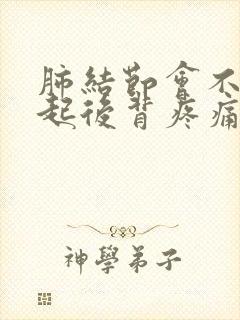 肺結節會不
起後背疼痛
神學弟子